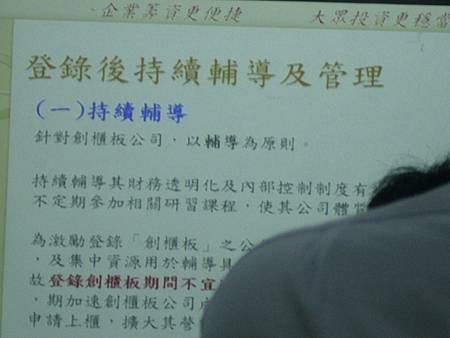 企業籌資更便捷 大眾投資更穩當
登錄後持續輔導及管理
(一)持續輔導
針對創櫃板公司,以輔導為原則。
持續輔導其財務透明化及內部控制制度有
不定期參加相關研習課程,使其公司體質
為激勵登錄「創櫃板」之公
,及集中資源用於輔導具
故登錄創櫃板期間不宜
,期加速創櫃板公司
申請上櫃,擴大其營